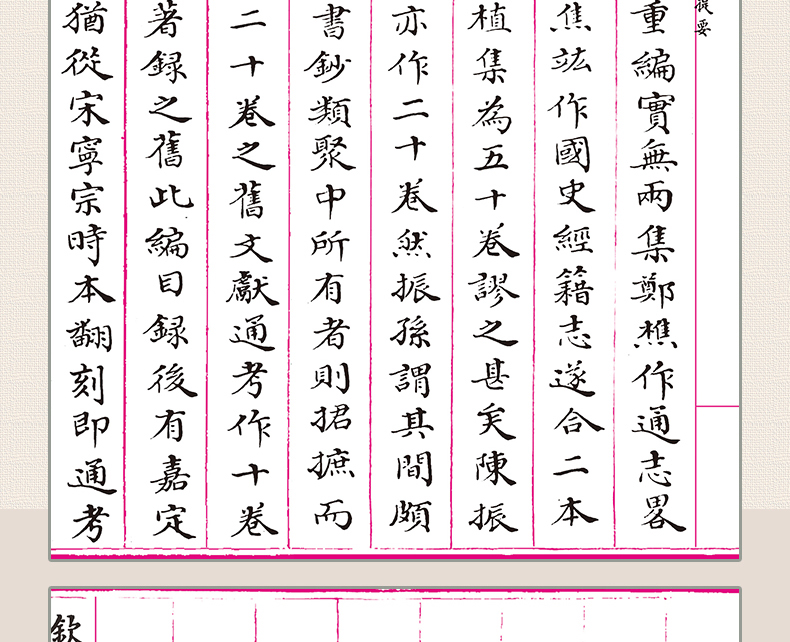 提要
重編實無兩集鄭樵作通志畧
焦竑作國史經籍志遂合二本
植集為五十卷謬之甚矣陳振
亦作二十卷然振孫謂其間頗
書鈔類聚中所有者則捃摭而
二十卷之舊文獻通考作十卷
著録之舊此編目録後有嘉定
猶從宋寧宗時本翻刻即通考
欽